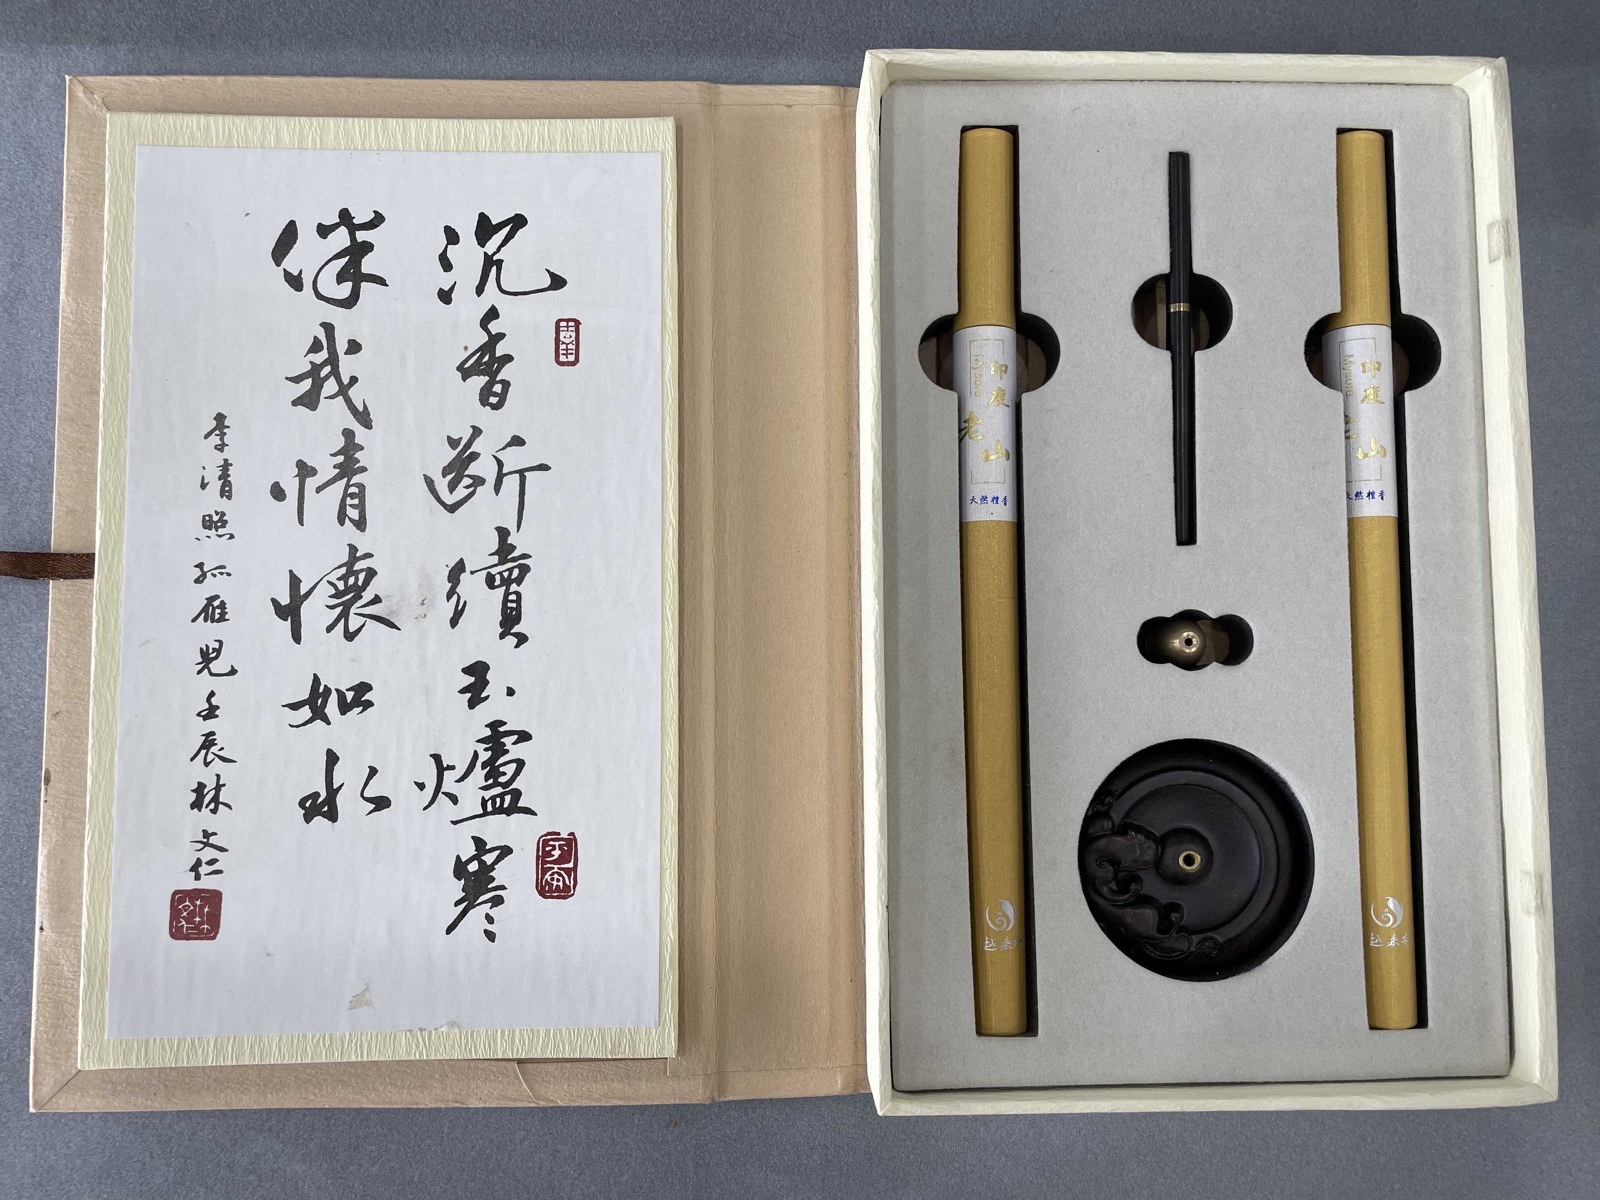 沉香斷續玉爐寒
伴我情懷如水
李清照孤雁兒壬辰林文仁
印度
老山
Mysore
天然檀香
印度
山
Mysore
天然檀香